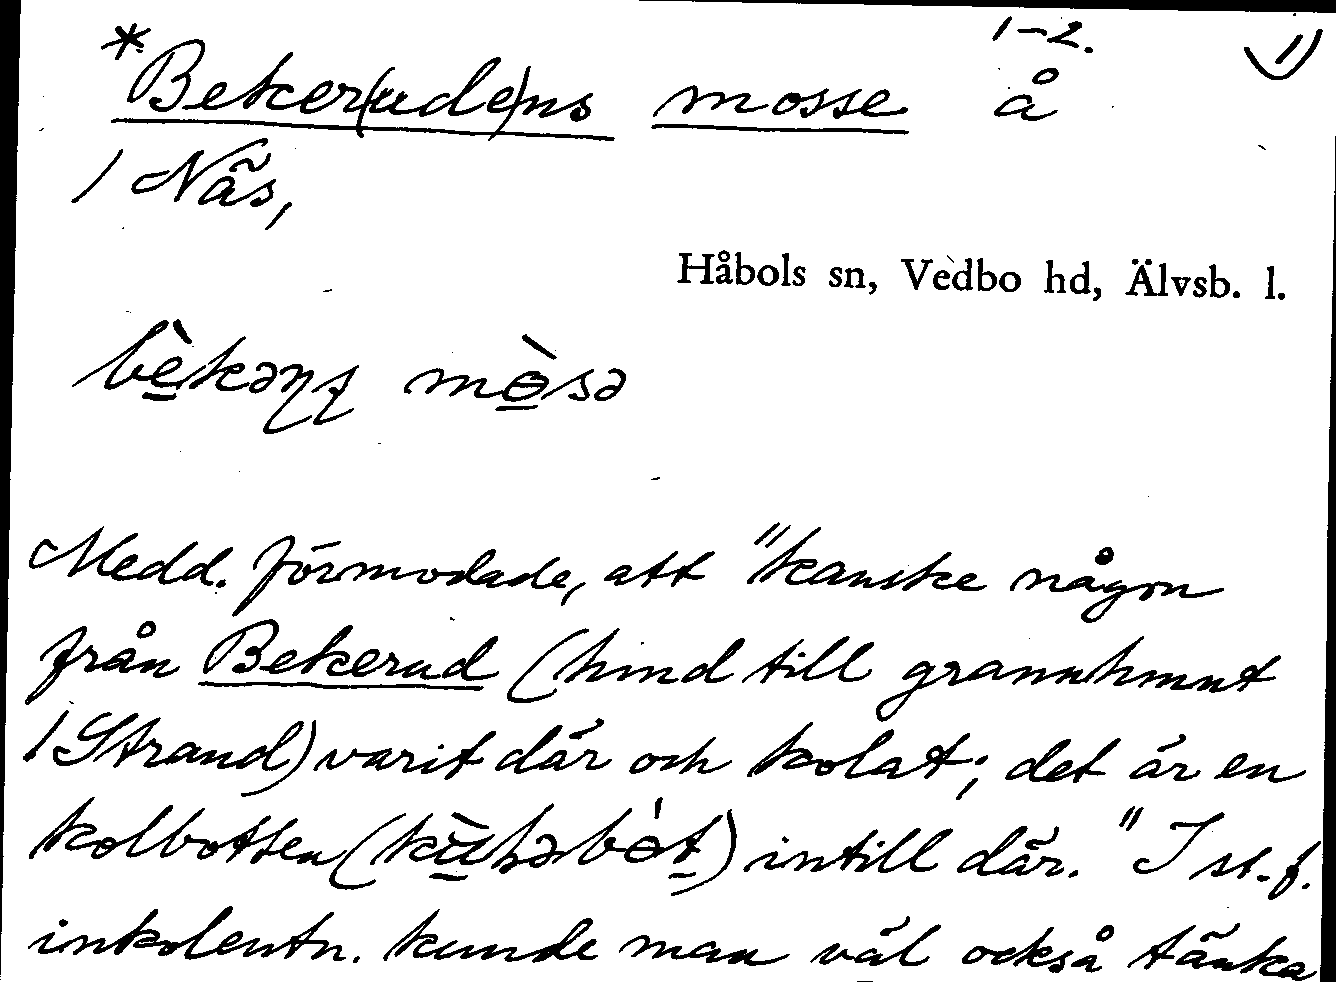 1-2. 1)
*Beker(ude)ns mosse å
/ Näs,
Håbols sn, Vedbo hd, Älvsb. l.
bèkəɳʂ mòsə
Medd. förmodade, att "kanske någon
från Bekerud (hmd till grannhmnt
/Strand) varit där och kolat; det är en
kolbotten intill där." I st. f.
inkolentn. kunde man väl också tänka